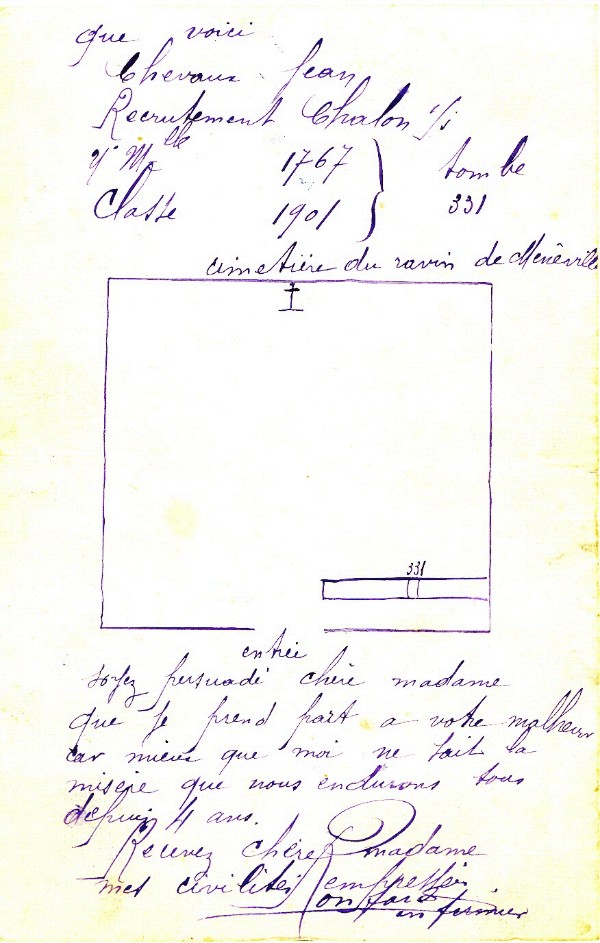 que voici
Chevaux Jean
Recrutement Chalon s/s
Mlle 1767
Classe 1901
tombe
331
cimetière du ravin de Ménéville
331
entrée
soyez persuadé chère madame
que je prend part a votre malheur
car mieux que moi ne sait la
misère que nous endurons tous
depuis 4 ans.
Recevez chère madame
mes civilités empressés
infirmier